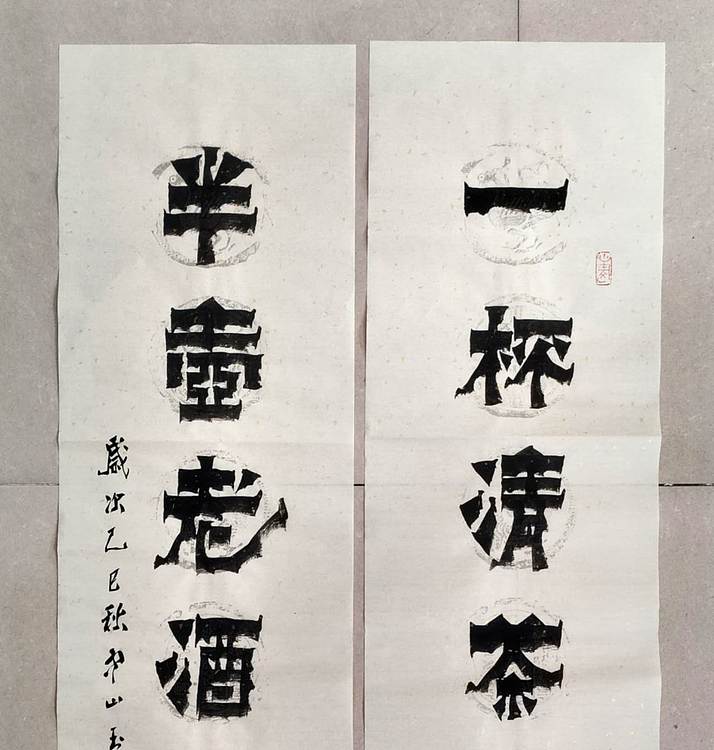 一杯清茶
半壶老酒
歲次乙巳秋